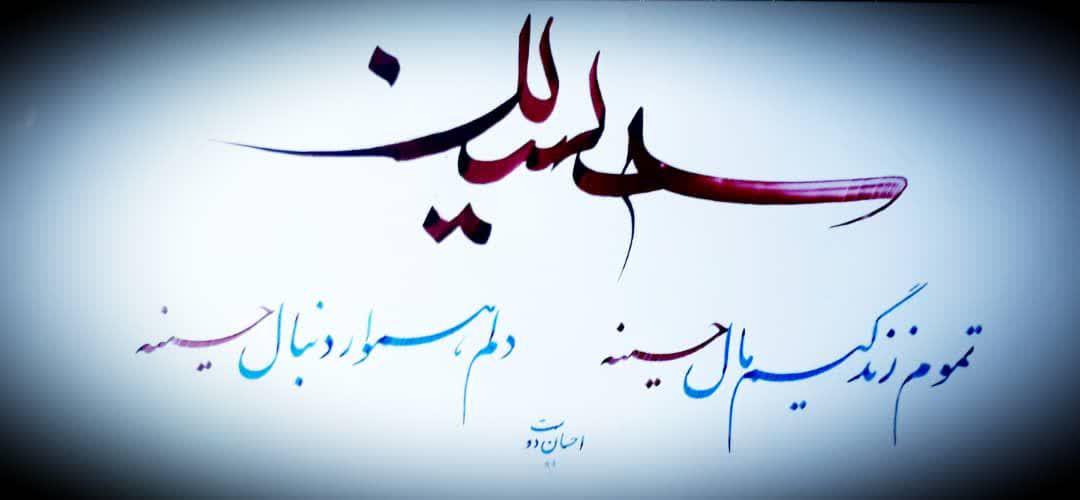 حسین
تموم زندگیم مال حسینه
دلم همواره دنبال حسینه
احسان دوست